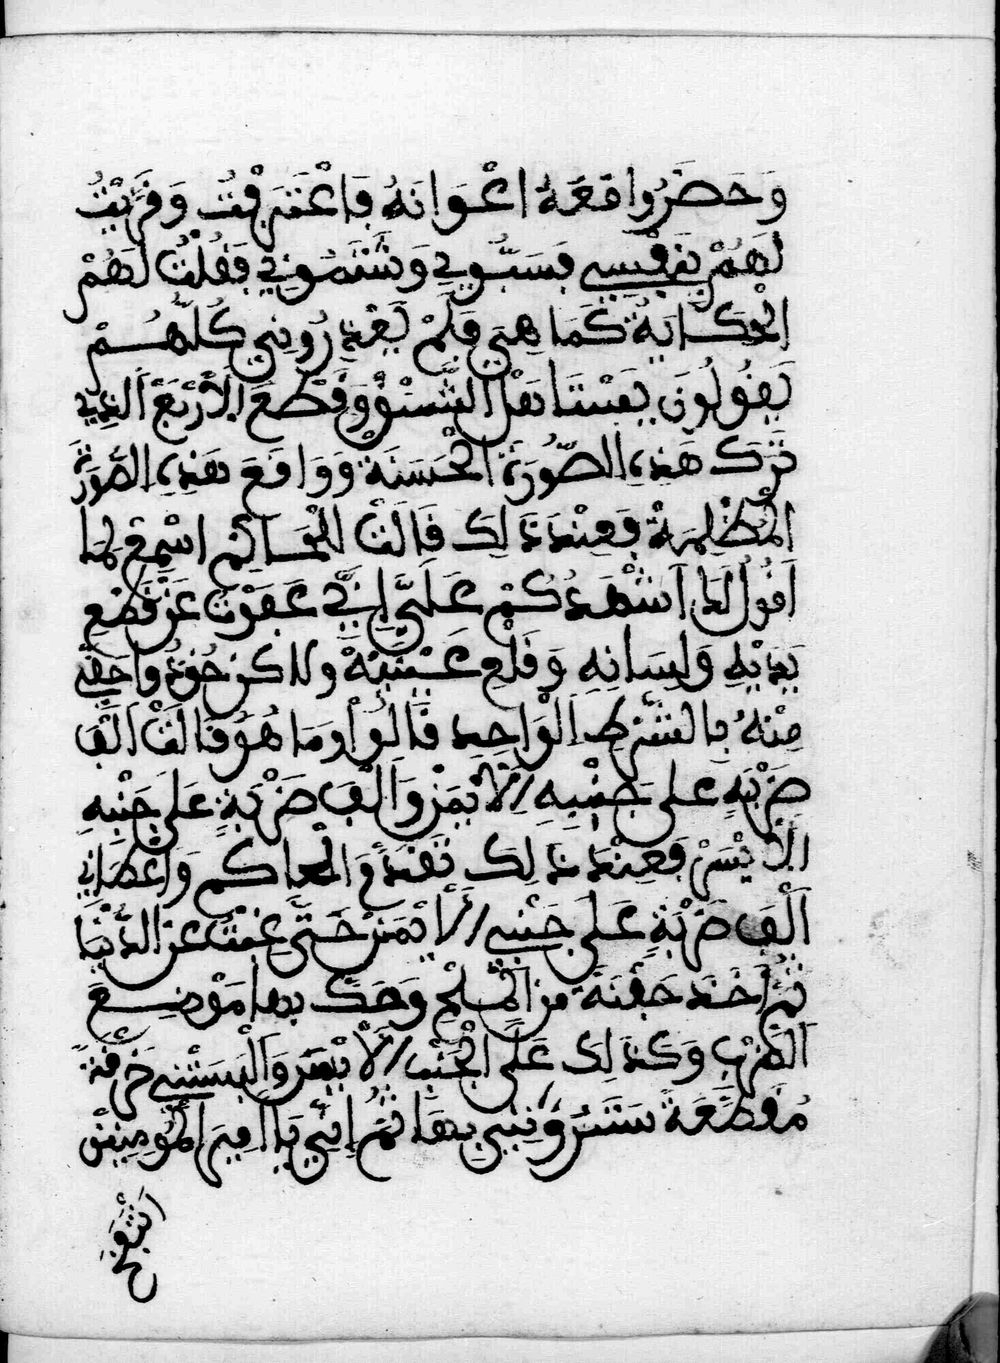 وَحَضَرُوا مَعَهُ اعْوَانَهُ فَاعْتَرَفْتُ وَفَرَّيْتُ
لَهُمْ بِنَفْسِي فَسَبُّونِي وَشَتَمُونِي فَقُلْتُ لَهُمْ
الْحِكَايَةَ كَمَا هِيَ فَلَمْ يَعْذِرُونِي كُلُّهُمْ
يَقُولُونَ يَسْتَاهَل الشَّنْقْ وَقَطْعَ الْأَرْبَعْ الذِي
تَرَكَ هَذِهِ الصُّورَةَ الْحَسَنَةَ وَوَاقَعَ هَذِهِ الصُّورَةَ
الْمُظْلِمَةْ فَعِنْدَ ذَلِكَ قَالَتْ لِلْحَاكِمِ اسْمِعْ لِمَا
اَقُولُ لَكَ اَشْهَدُكُمْ عَلَيَّ اِنِّي عَفَوْتُ عَنْ قَطْعِ
يَدَيْهِ وَلِسَانِهِ وَقَلْعِ عَيْنَيْهِ وَلَاكِنْ خُذْ وا حَقِّي
مِنْهُ بِالشَّرْطِ الْوَاحِدِ قَالُوا وَمَا هُوَ قَالَتْ اَلْفَ
ضَرْبَةٍ عَلَى جَنْبِهِ الْأَيْمَنْ وَأَلْفَ ضَرْبَةٍ عَلَى جَنْبِهِ
الْأَيْسَرْ فَعِنْدَ ذَلِكَ تَقَدَّمَ الْحَاكِمْ وَاعْطَانِي
اَلْفَ ضَرْبَةٍ عَلَى جَنْبِي الْأَيْمَنْ حَتَّى غِبْتُ عَنِ الدُّنْيَا
ثُمَّ أَخَذَ حَفْنَةً مِنَ الْمِلْحِ وَحَكَّ بِهَا مَوْضِعَ
الضَّرْبِ وَكَذَلِكَ عَلَى الْجَنْبِ الْأَيْسَرْ وَأَلْبَسَتْنِي خِرْقَةً
مُقَطَّعَةً سَتَرُونِي بِهَا ثُمَّ اِنِّي يَا اَمِيرَ الْمُومِنِينَ